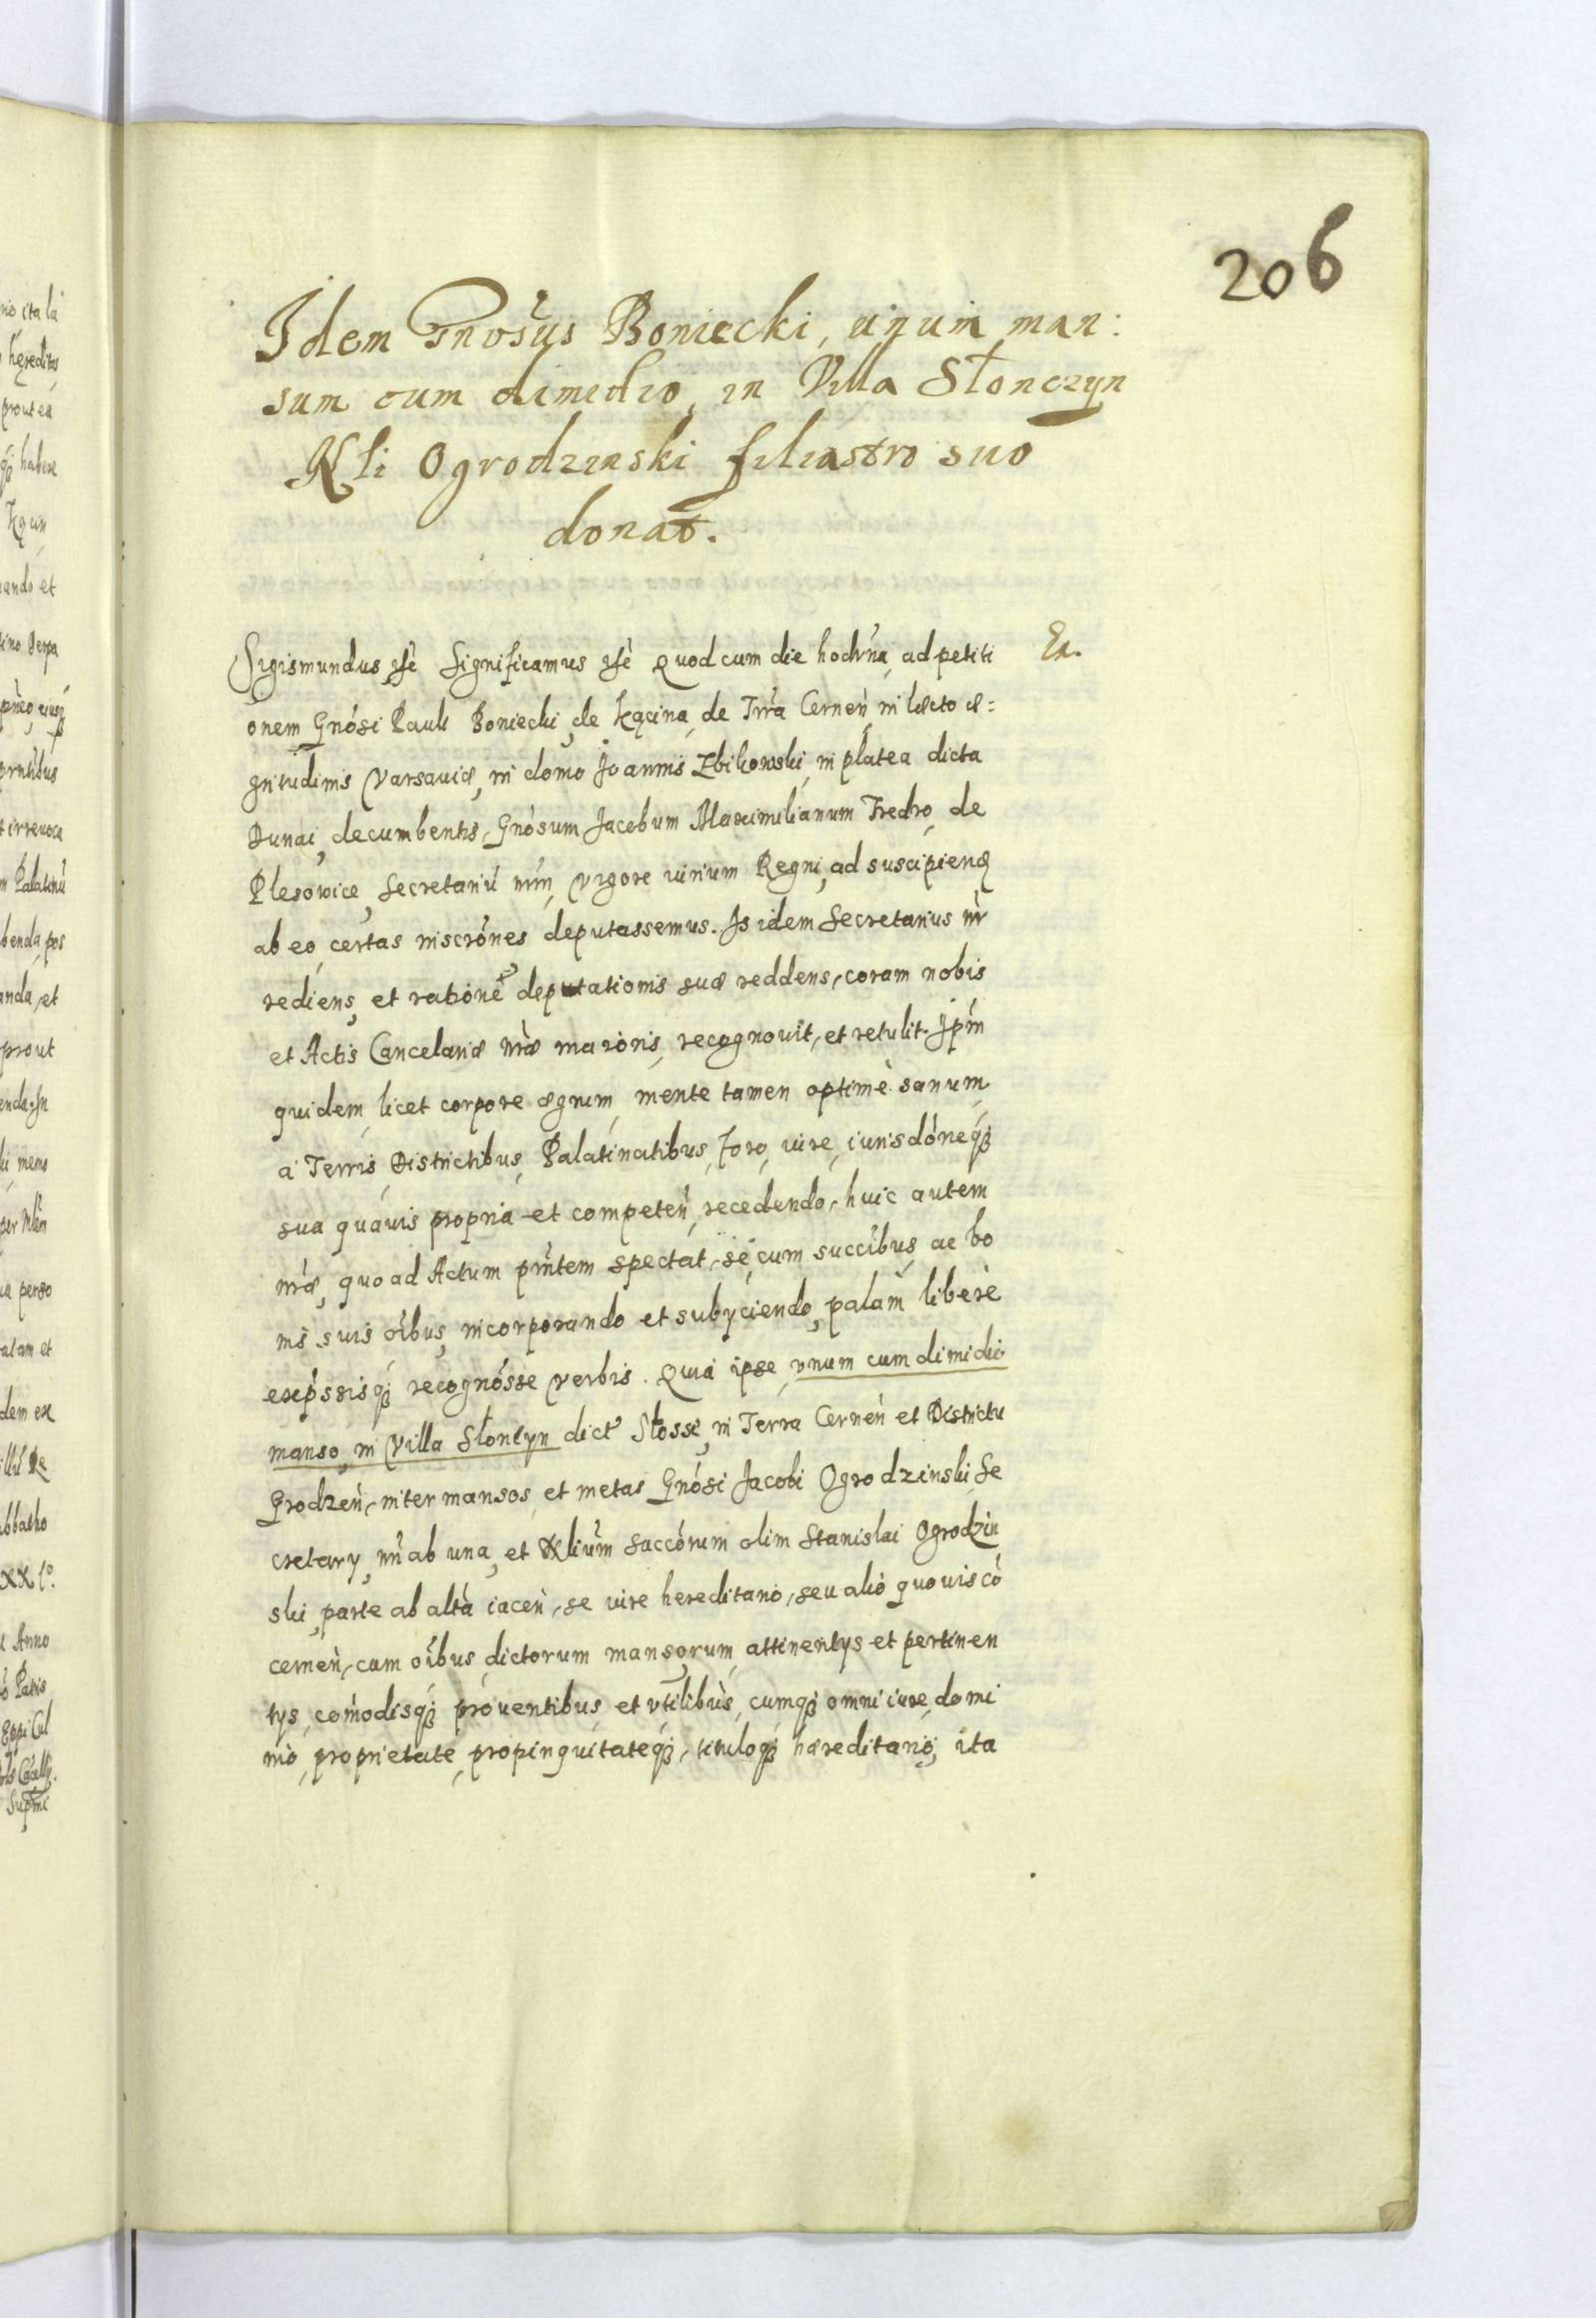 206
Idem Gnosus Boniecki, unum man:
sum cum dimidio, in Villa Słonczyn
Nli Ogrodzinski filiastro suo
donat.
Sigismundus Significamus Quod cum die hodrna, ad petiti
Ex.
onem Gnosi Pauli Boniecki, de Kącina, de Trra Cernen, in lecto æ=
gritudinis Varsaviæ, in domo Joannis Zbikowski, in platea dicta
Dunai, decumbentis, Gnosum Jacobum Maximilianum Fredro, de
Plesowice, Secretariu nrm, vigore iurium Regni, ad suscipiend
ab eo, certas inscrones deputassemus. Is idem Secretarius nr
rediens, et ratione deputationis suæ reddens, coram nobis
et Actis Cancelariæ nræ maioris, recognovit, et retulit. Ipm
quidem, licet corpore ægrum, mente tamen optimè sanum,
à Terris, Districtibus, Palatinatibus, foro, iure, iurisdoneq3
sua quavis propria et competen, recedendo, huic autem
nræ, quo ad Actum prntem spectat, se, cum succibus, ac bo
nis suis oibus, incorporando et subyciendo, palam libere
expssisq3 recognosse verbis. Quia ipse, unum cum dimidio
manso, in Villa Słonczyn dict Stosse, in Terra Cernen et Districtu
Grodzen, inter mansos, et metas Gnosi Jacobi Ogrodzinski, Se
cretary, nri ab una, et Nlium Saccorum olim Stanislai Ogrodzin
ski, parte ab altà iacen, se iure hereditario, seu alio quovis cò
cernen, cum oibus dictorum mansorum, attinentys et pertinen
tys, comodisq3 proventibus, et utilibus, cumq3 omni iure, domi
nio, proprietate, propinquitateq3, tituloq3 hæreditario, ita